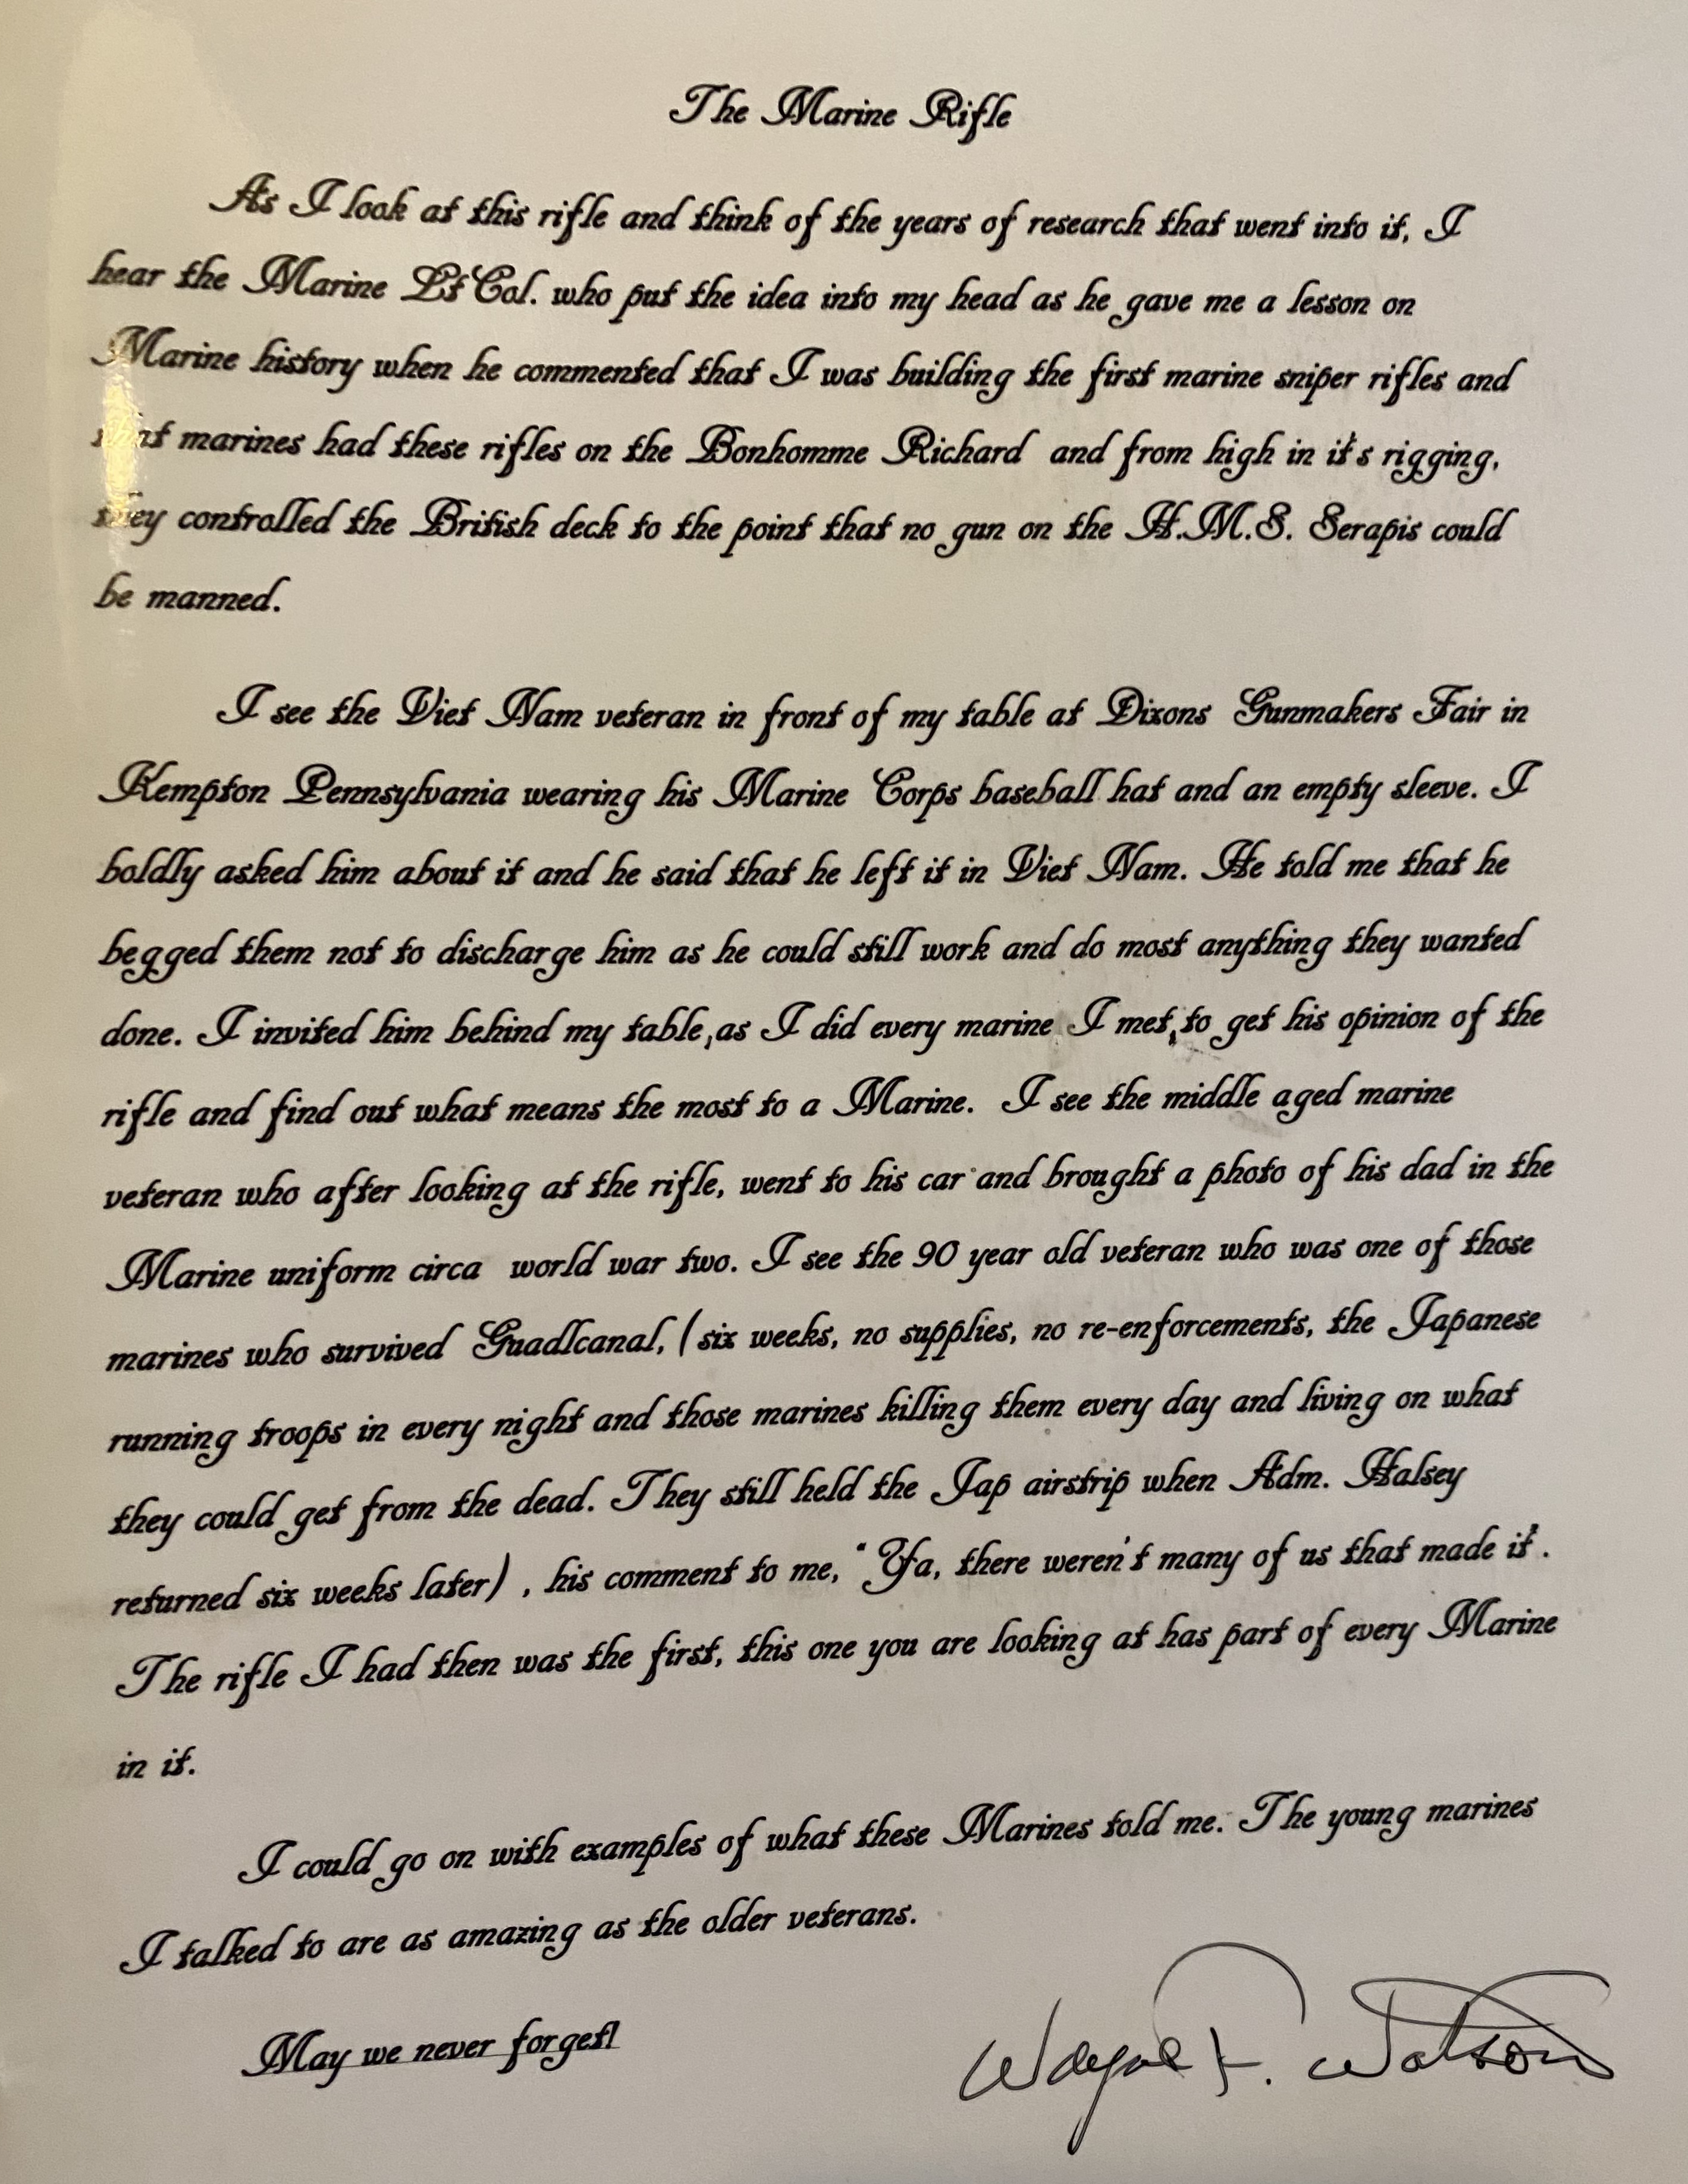 The Marine Rifle
As I look at this rifle and think of the years of research that went into it, I
hear the Marine Lt Col. who put the idea into my head as he gave me a lesson on
Marine history when he commented that I was building the first marine sniper rifles and
marines had these rifles on the Bonhomme Richard and from high in it's rigging,
they controlled the British deck to the point that no gun on the H.M.S. Serapis could
be manned.
I see the Viet Nam veteran in front of my table at Dixons Gunmakers Fair in
Kempton Pennsylvania wearing his Marine Corps baseball hat and an empty sleeve. I
boldly asked him about it and he said that he left it in Viet Nam. He told me that he
begged them not to discharge him as he could still work and do most anything they wanted
done. I invited him behind my table, as I did every marine I met, to get his opinion of the
rifle and find out what means the most to a Marine. I see the middle aged marine
veteran who after looking at the rifle, went to his car and brought a photo of his dad in the
Marine uniform circa world war two. I see the 90 year old veteran who was one of those
marines who survived Guadlcanal, (six weeks, no supplies, no re-enforcements, the Japanese
running troops in every night and those marines killing them every day and living on what
they could get from the dead. They still held the Jap airstrip when Adm. Halsey
returned six weeks later) , his comment to me, "Ya, there weren't many of us that made it".
The rifle I had then was the first, this one you are looking at has part of every Marine
in it.
I could go on with examples of what these Marines told me. The young marines
I talked to are as amazing as the older veterans.
May we never forget!
Wayne F. Watson